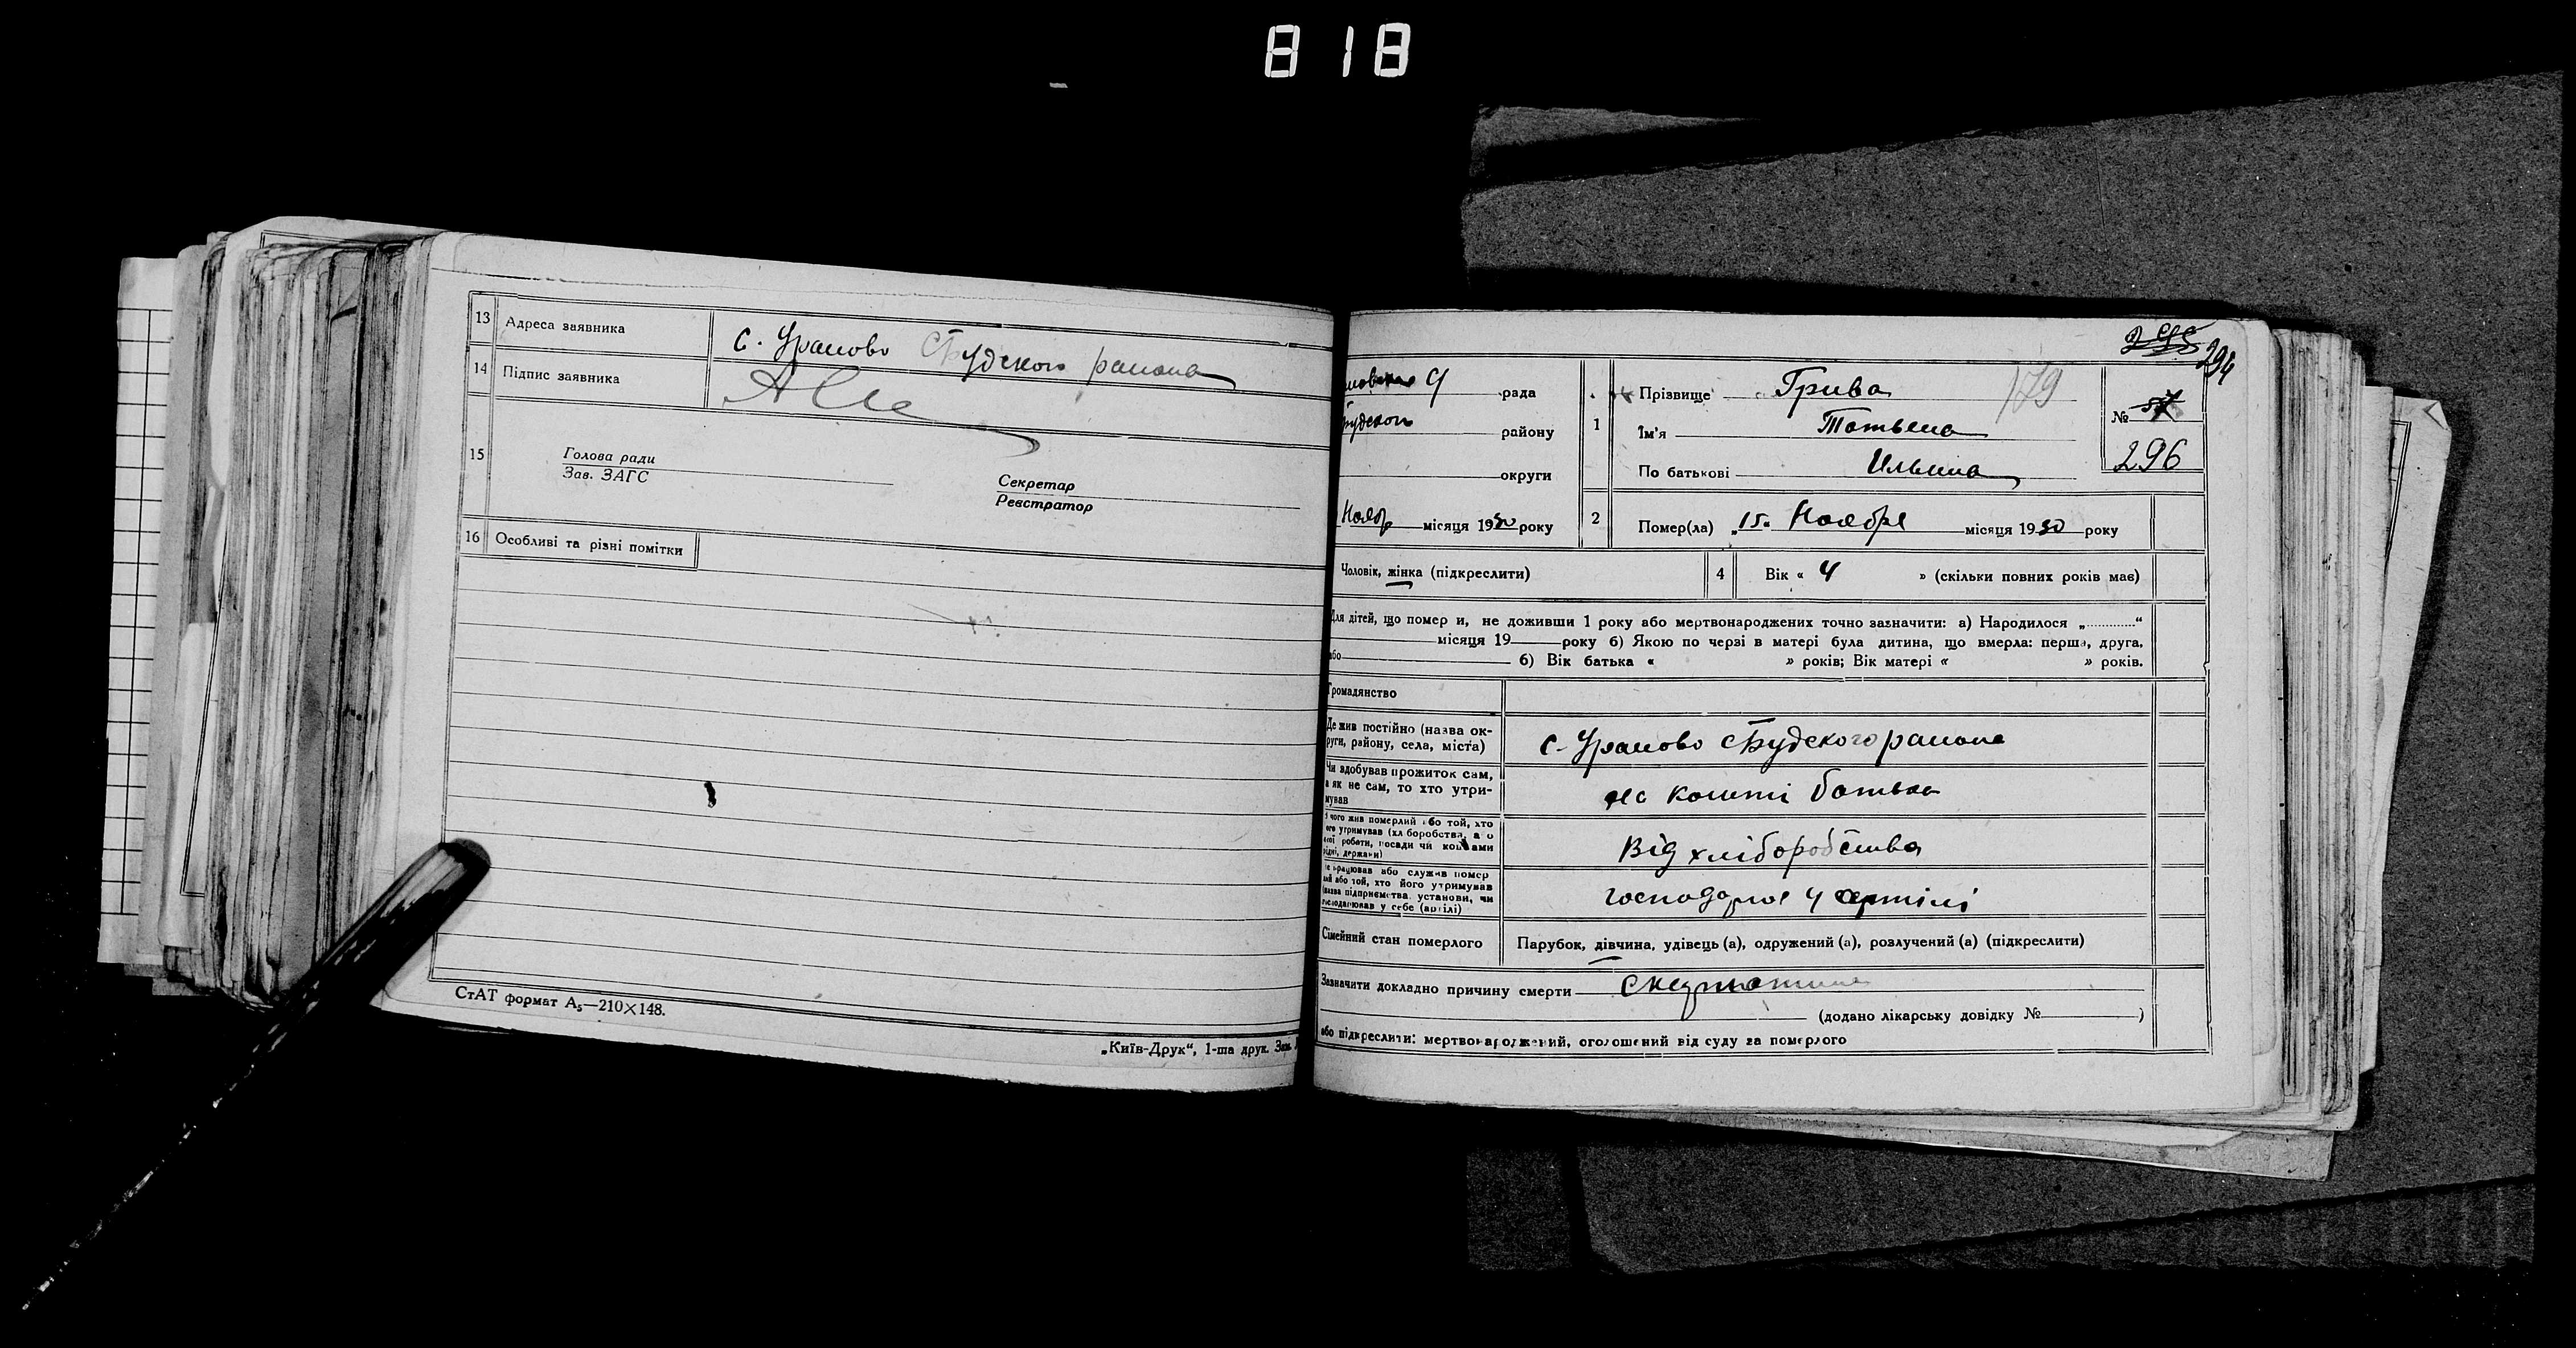 818
13 Адреса заявника с. Ураново СБудского района
14 Підпис заявника
15 Голова ради
Зав. ЗАГС
Секретар
Реєстратор
16 Особливі та різні помітки
СтАТ формат А₅—210×148.
„Київ-Друк“, 1-ша друк. Зам.
295 294
рада
району
округи
Нояб місяця 1930 року
1 Прізвище Грива 179
Ім'я Татьяна
По батькові Ильина
№ 57
296
2 Помер(ла) „15“ Ноября місяця 1930 року
Чоловік, жінка (підкреслити)
4 Вік « 4 » (скільки повних років має)
Для дітей, що помер и, не доживши 1 року або мертвонароджених точно зазначити: а) Народилося „............“
місяця 19 року б) Якою по черзі в матері була дитина, що вмерла: перша, друга,
або б) Вік батька « » років; Вік матері « » років.
Громадянство
Де жив постійно (назва ок-
руги, району, села, міста) с. Ураново СБудского района
Чи здобував прожиток сам,
а як не сам, то хто утри-
мував на кошті батька
З чого жив померлий або той, хто
його утримував (хл боробства, а о
робати, посади чи кош ами
держави) Від хліборобства
працював або служив помер
або той, хто його утримував
(назва підприємства, установи, чи
господарював у себе (артілі) господарює у артілі
Сімейний стан померлого Парубок, дівчина, удівець (а), одружений (а), розлучений (а) (підкреслити)
Зазначити докладно причину смерти скарлатина
(додано лікарську довідку № )
або підкреслити: мертвонароджений, оголошений від суду за померлого